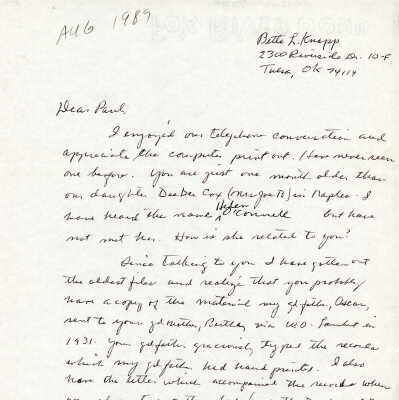 AUG 1989
Bette L. Knapp
2300 Riverside Dr. 10-F
Tulsa, OK 74114
Dear Paul,
I enjoyed our telephone conversation and
appreciate the computer print out. Have never seen
one before. You are just one month older than
our daughter DeeDee Cox in Naples. I
have heard the name Helen O'Connell but have
not met her. How is she related to you?
Since talking to you I have gotten out
the oldest files and realize that you probably
have a copy of the material my gdfather, Oscar,
sent to your gdmother, Bertha, via in
1931. Your gdfather graciously typed the records
which my gdfather had hand printed. I also
have the letter which accompanied the records when